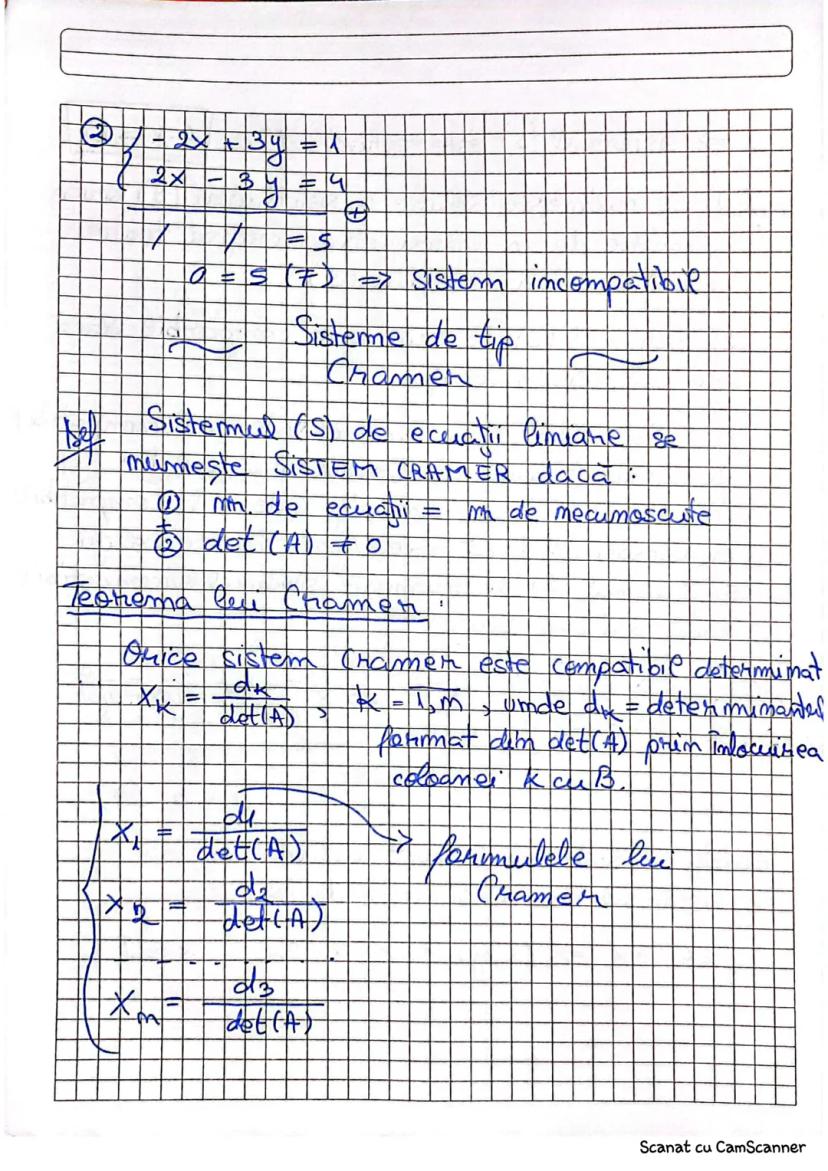 ② { - 2x + 3y = 1
2x - 3y = 4
⊕
/ / = 5
0 = 5 (F) => Sistem incompatibil
Sisteme de tip
Cramer
Def Sistemul (S) de ecuații liniare se
numește SISTEM CRAMER dacă :
① nr. de ecuații = nr de necunoscute
+
② det (A) ≠ 0
Teorema lui Cramer :
Orice sistem Cramer este compatibil determinat
x_k = d_k / det(A) , k = 1,n , unde d_k = determinantul
format din det(A) prin înlocuirea
coloanei k cu B.
{ x_1 = d_1 / det(A) → formulele lui
Cramer
x_2 = d_2 / det(A)
- - - . . . . .
x_n = d_3 / det(A)
Scanat cu CamScanner